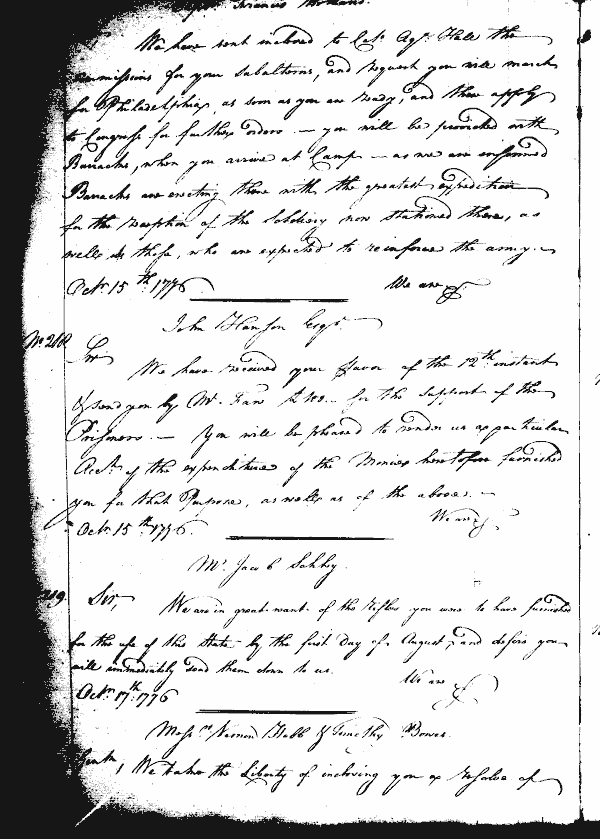 We have sent inclosed to Capt. Ags. Hall the
Commissions for your Subalterns, and request you will march
for Philadelphia, as soon as you are ready, and there apply
to Congress for further orders — you will be provided with
Barracks, when you arrive at Camp — as we are informed
Barracks are erecting there with the greatest expedition
for the reception of the Soldiery now stationed there, as
well as those, who are expected to reinforce the army. —
Octr. 15th 1776. We are &c
John Hanson Esqr.
No. 218 Sir
We have received your favor of the 12th instant
& send you by Mr. for the support of the
Prisoners. — You will be pleased to render us a particular
Acct. of the expenditure of the Monies heretofore furnished
you for that Purpose, as well as of the above. —
Octr. 15th 1776. We are &c
Mr. Jacob
219. Sir, We are in great want of the Rifles you were to have furnished
for the use of this State by the first Day of August, and desire you
will immediately send them down to us.
We are &c
Octr. 17th 1776
Messrs. Vernon Hebb & Timothy Bowes.
Gentn, We take the Liberty of inclosing you a Resolve of